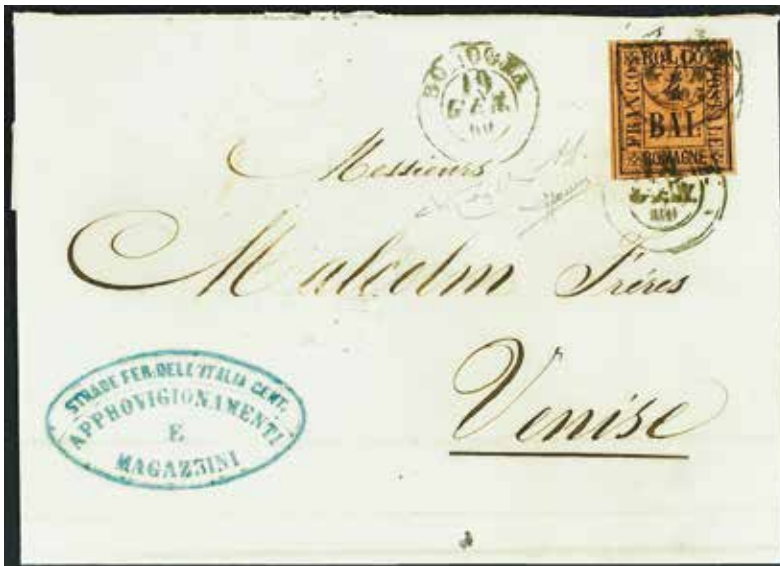 BOLOGNA
19
GEN.
60
FRANCO
BOLLO
POSTALE
BAI.
ROMAGNE
GEN.
Messieurs
Malcolm Frères
Venise
STRADE FER. DELL'ITALIA CENT.
APPROVIGIONAMENTI
E
MAGAZZINI